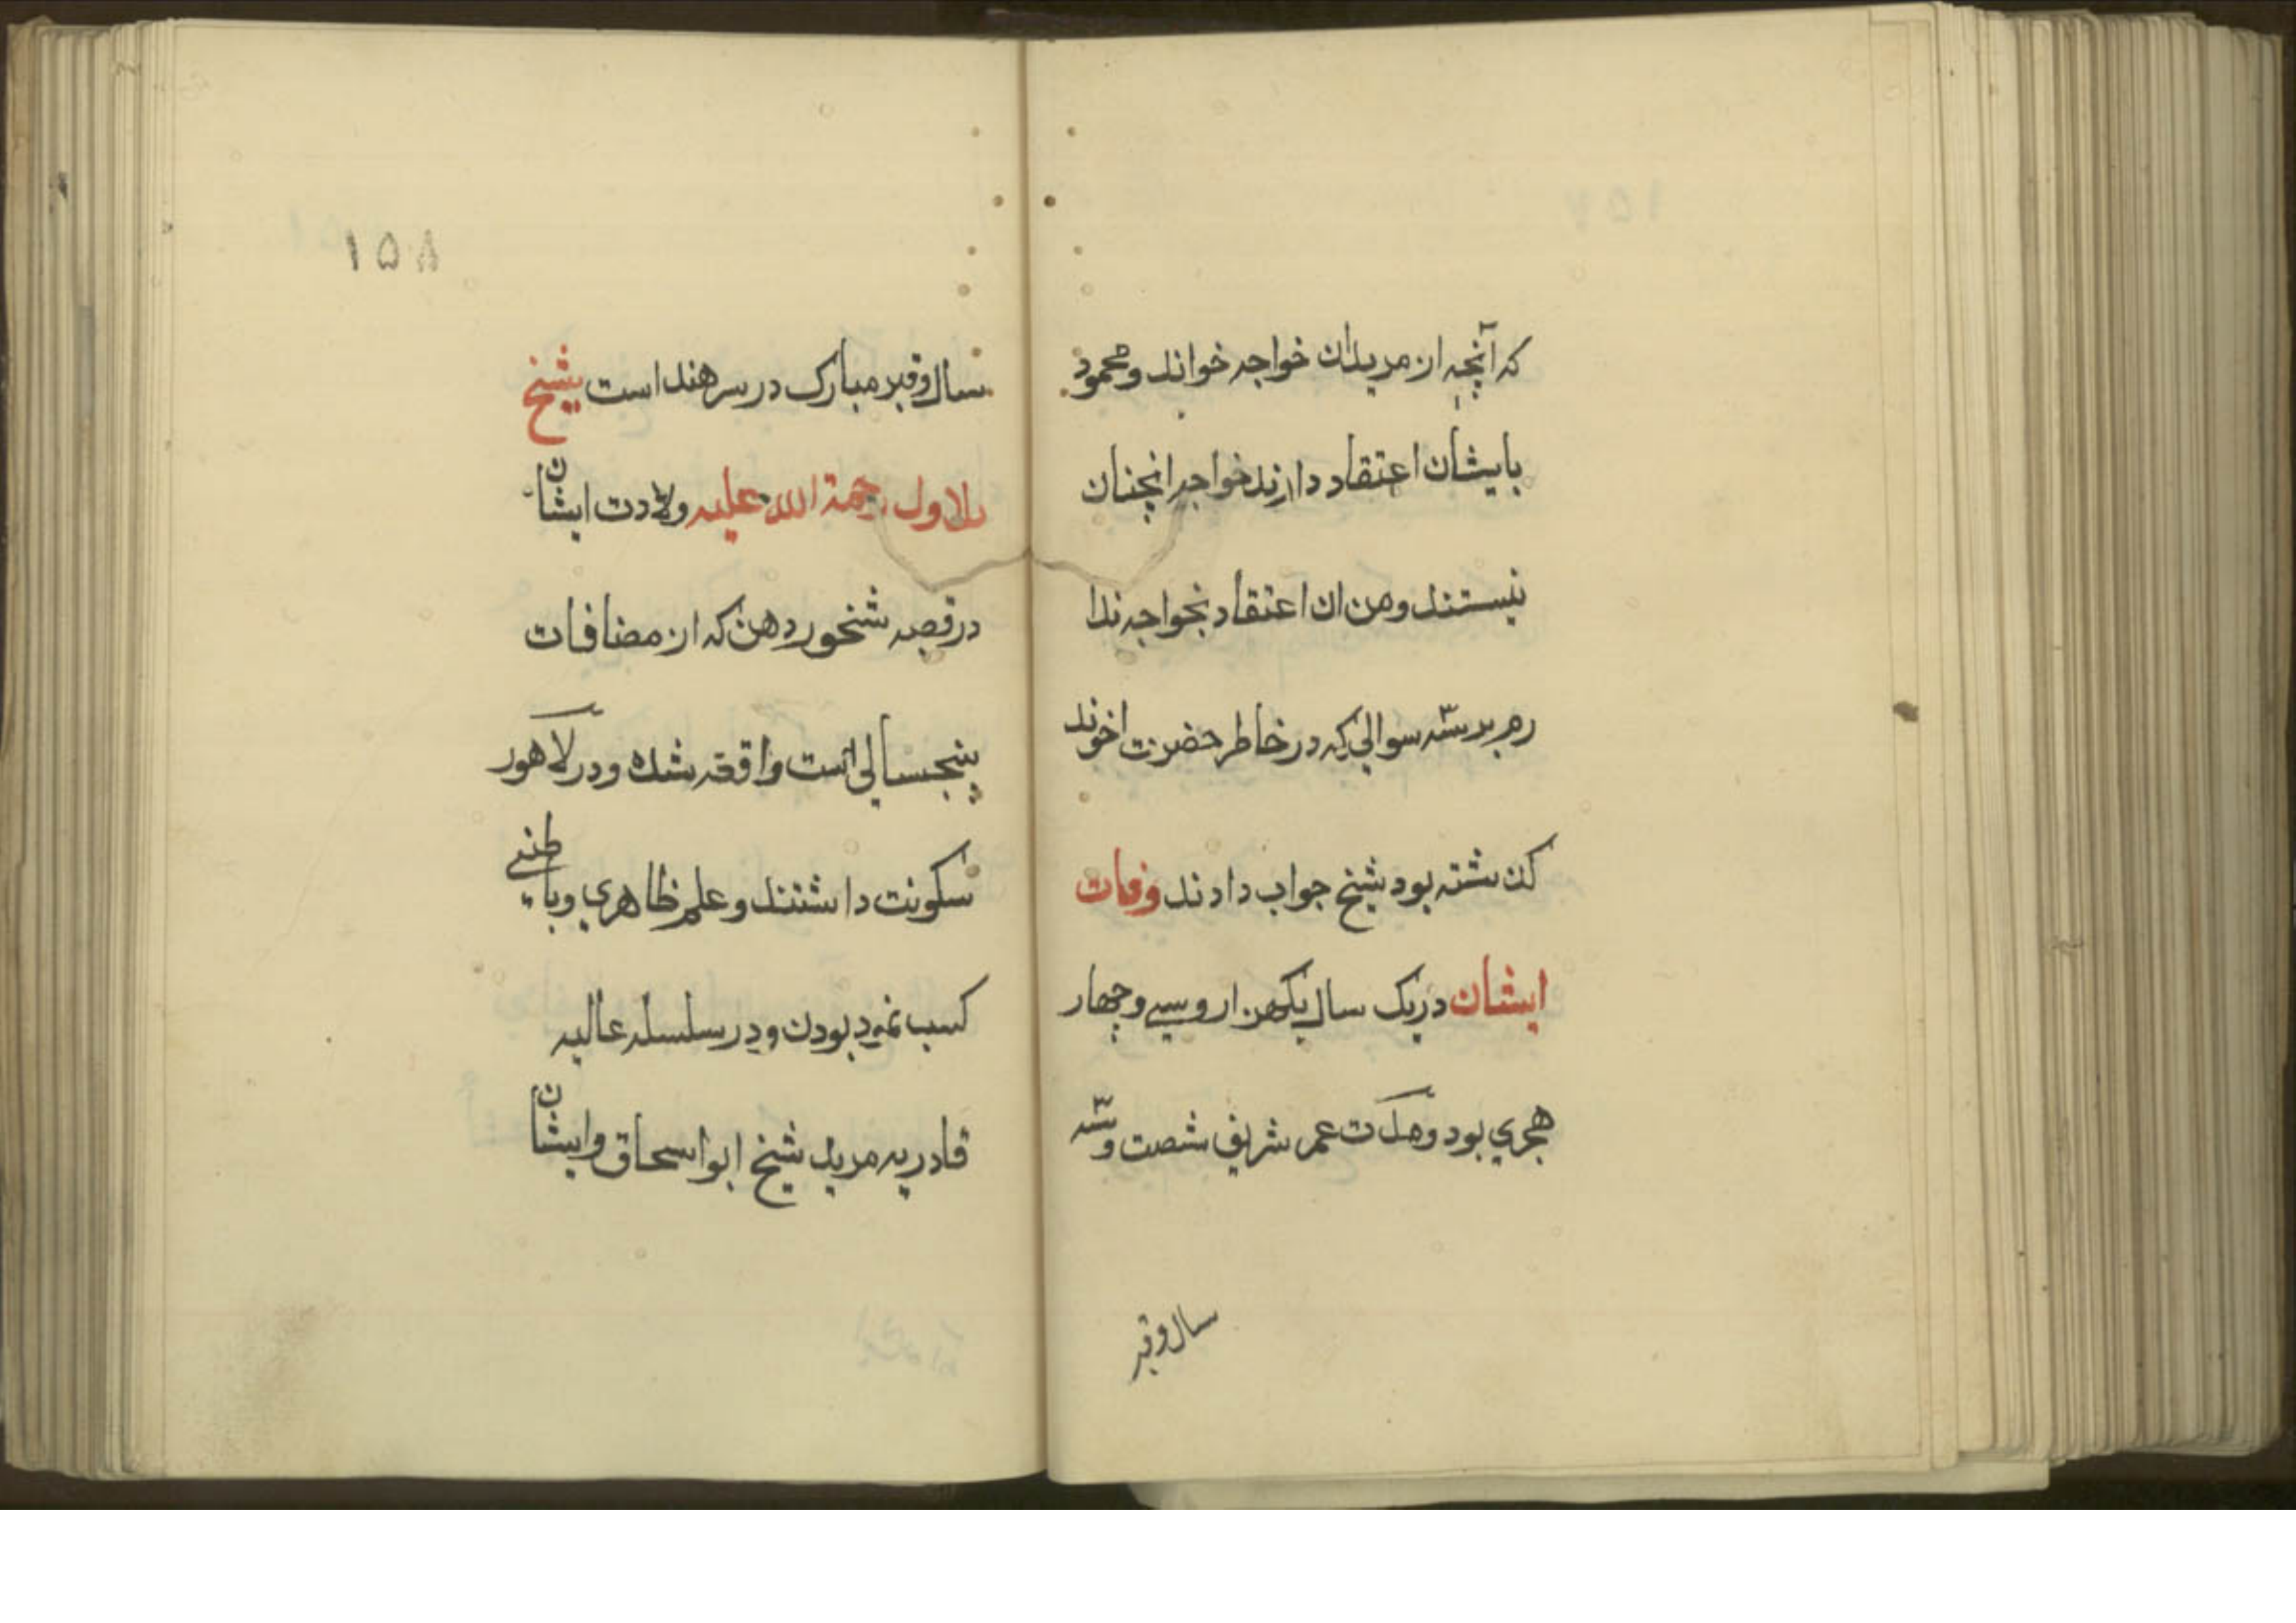 که آنچه از مریدان خواجه خواند و محمود
بایشان اعتقاد دارند خواجه انچنان
نیستند و من ان اعتقاد بخواجه ندا
رم بر سه سوالی که در خاطر حضرت اخوند
کذشته بود شیخ جواب دادند وفات
ایشان در یک سال یکهزار و سی و چهار
هجری بود و مدت عمر شریف شصت و سه
سال و قبر
۱۵۸
سال و قبر مبارک در سرهند است شیخ
بلاول رحمة الله علیه ولادت ایشان
در قصبه شخورد هن که از مضافات
پنجسالی است واقعه شده و در لاهور
سکونت داشتند و علم ظاهری و باطنی
کسب نمود بودن و در سلسله عالیه
قادریه مرید شیخ ابو اسحاق و ایشان